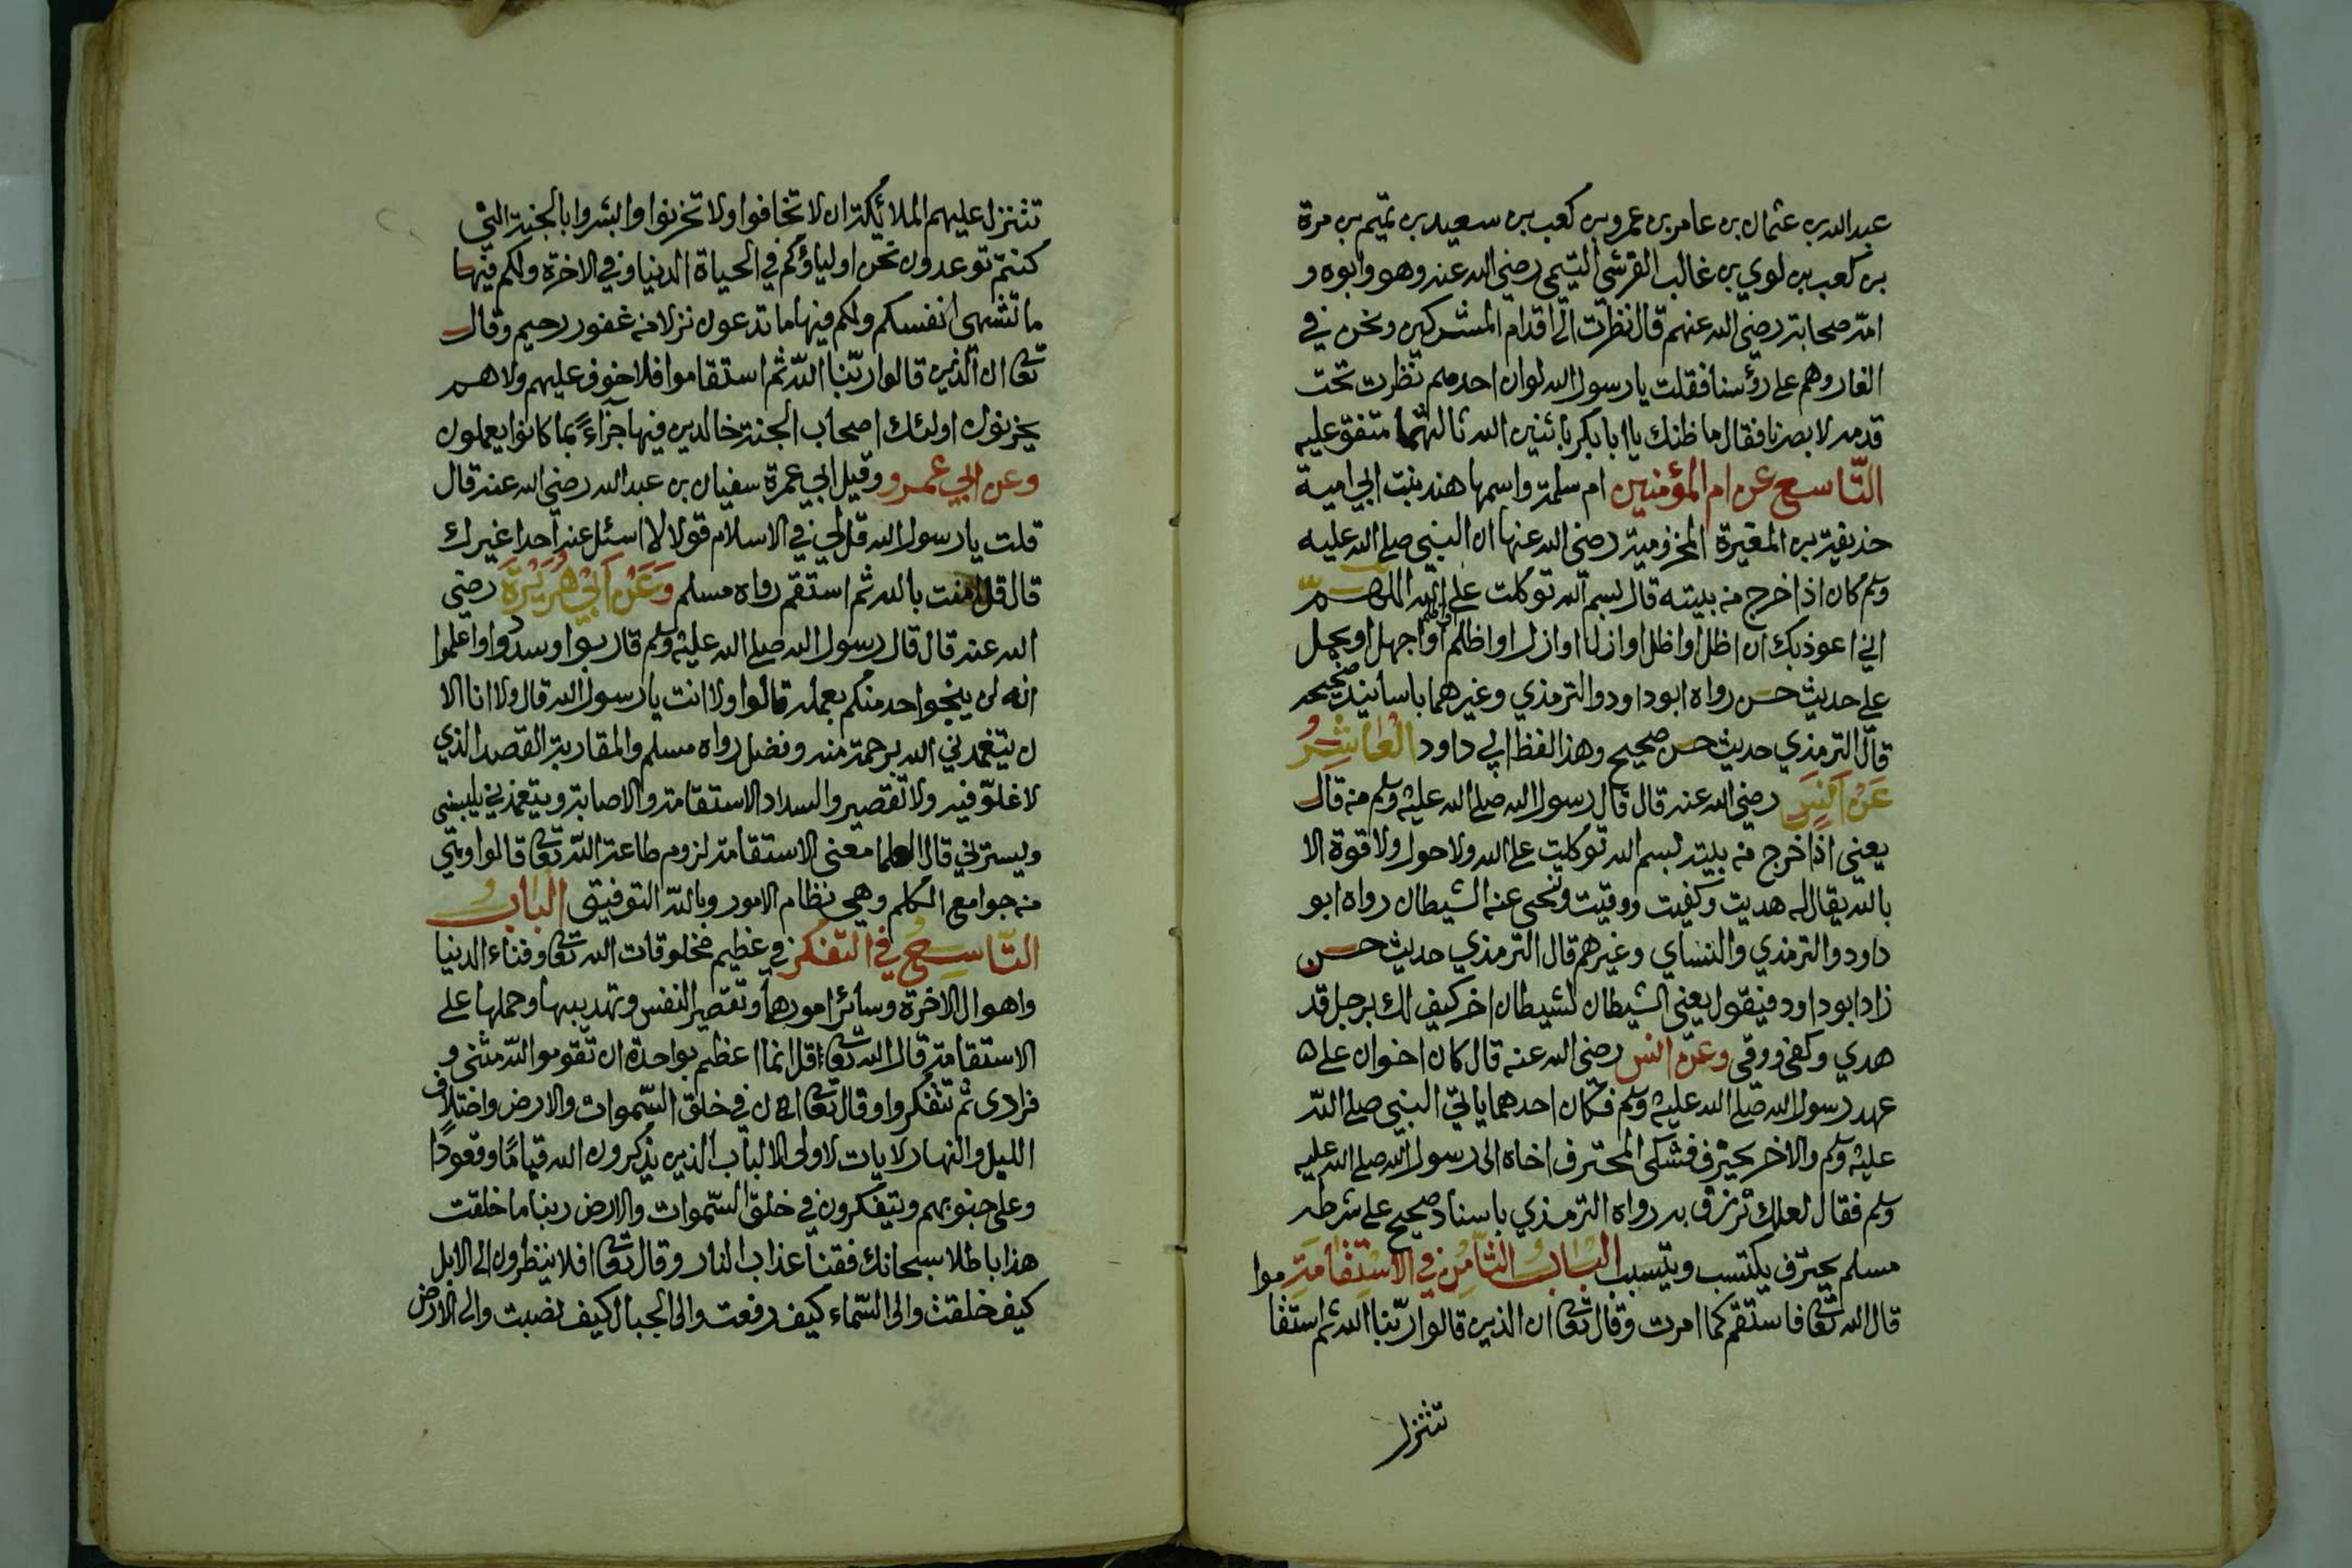 عبد الله بن عثمان بن عامر بن عمرو بن كعب بن سعيد بن تميم بن مرة
بن كعب بن لوي بن غالب القرشي التيمي رضي الله عنه وهو وابوه و
امه صحابة رضي الله عنهم قال نظرت الى اقدام المشركين ونحن في
الغار وهم على رؤسنا فقلت يا رسول الله لو ان احدهم نظرت تحت
قدمه لابصرنا فقال ما ظنك يا ابا بكر باثنين الله ثالثهما متفق عليه
التّاسع عن ام المؤمنين ام سلمة واسمها هند بنت ابي امية
حذيفة بن المغيرة المخزومية رضي الله عنها ان النبي صلى الله عليه
وسلم كان اذا خرج من بيته قال بسم الله توكلت على الله اللهم
اني اعوذ بك ان اظل او اظل او ازل او ازل او اظلم او اظلم او اجهل او يجهل
علي حديث حسن رواه ابو داود والترمذي وغيرهما باسانيد صحيحه
قال الترمذي حديث حسن صحيح وهذا لفظ ابي داود العاشر
عن انس رضي الله عنه قال قال رسول الله صلى الله عليه وسلم من قال
يعني اذا خرج من بيته بسم الله توكلت على الله ولا حول ولا قوة الا
بالله يقال له هديت وكفيت ووقيت وتنحى عنه الشيطان رواه ابو
داود والترمذي والنساي وغيرهم قال الترمذي حديث حسن
زاد ابو داود فيقول يعني الشيطان لشيطان اخر كيف لك برجل قد
هدي وكفي ووقي وعن انس رضي الله عنه قال كان اخوان على
عهد رسول الله صلى الله عليه وسلم فكان احدهما ياتي النبي صلى الله
عليه وسلم والاخر يحترف فشكى المحترف اخاه الى رسول الله صلى الله عليه
وسلم فقال لعلك ترزق به رواه الترمذي باسناد صحيح على شرط
مسلم يحترف يكتسب ويتسبب الباب الثامن في الاستقامة موا
قال الله تعالى فاستقم كما امرت وقال تعالى ان الذين قالوا ربنا الله ثم استقا
تتنزل
تتنزل عليهم الملائكة ان لا تخافوا ولا تحزنوا وابشروا بالجنة التي
كنتم توعدون نحن اولياؤكم في الحياة الدنيا وفي الاخرة ولكم فيها
ما تشهى انفسكم ولكم فيها ما تدعون نزلا من غفور رحيم وقال
تعالى ان الذين قالوا ربّنا الله ثم استقاموا فلا خوف عليهم ولا هم
يحزنون اولئك اصحاب الجنة خالدين فيها جزاءً بما كانوا يعملون
وعن ابي عمرو وقيل ابي عمرة سفيان بن عبد الله رضي الله عنه قال
قلت يا رسول الله قل لي في الاسلام قولا لا اسئل عنه احدا غيرك
قال قل امنت بالله ثم استقم رواه مسلم وَعَنْ اَبِي هُرَيْرَةَ رضي
الله عنه قال قال رسول الله صلى الله عليه وسلم قاربوا وسددوا واعلموا
انه لن ينجوا احد منكم بعمله قالوا ولا انت يا رسول الله قال ولا انا الا
ان يتغمدني الله برحمة منه وفضل رواه مسلم والمقاربة القصد الذي
لا غلوّ فيه ولا تقصير والسداد الاستقامة والاصابة ويتغمدني يلبسني
ويسترني قال العلما معنى الاستقامة لزوم طاعة الله تعالى قالوا وهي
من جوامع الكلم وهي نظام الامور وبالله التوفيق الباب
التاسع في التفكر في عظيم مخلوقات الله تعالى وفناء الدنيا
واهوال الاخرة وسائر امورها وتقصير النفس وتهديبها وحملها على
الاستقامة قال الله تعالى قل انما اعظكم بواحدة ان تقوموا لله مثنى و
فرادى ثم تتفكروا وقال تعالى ان في خلق السّموات والارض واختلاف
الليل والنهار لايات لاولى الالباب الذين يذكرون الله قيامًا وقعودًا
وعلى جنوبهم ويتفكرون في خلق السّموات والارض ربنا ما خلقت
هذا باطلا سبحانك فقنا عذاب النار وقال تعالى افلا ينظرون الى الابل
كيف خلقت والى السّماء كيف رفعت والى الجبال كيف نصبت والى الارض